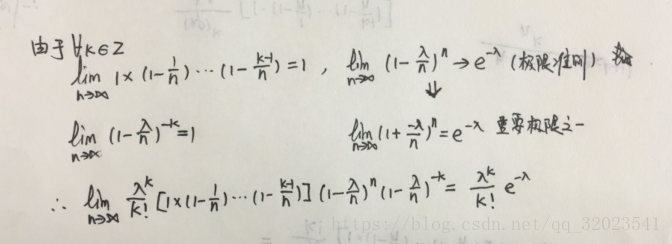 由于∀k∈Z
lim n→∞ 1×(1-1/n)⋯(1-(k-1)/n)=1 , lim n→∞ (1-λ/n)^n → e^-λ (极限准则)
⇓
lim n→∞ (1-λ/n)^-k=1 lim n→∞ (1+(-λ)/n)^n=e^-λ 重要极限之一
∴ lim n→∞ λ^k/k! [1×(1-1/n)⋯(1-(k-1)/n)] (1-λ/n)^n (1-λ/n)^-k = λ^k/k! e^-λ
https://blog.csdn.net/qq_32023541